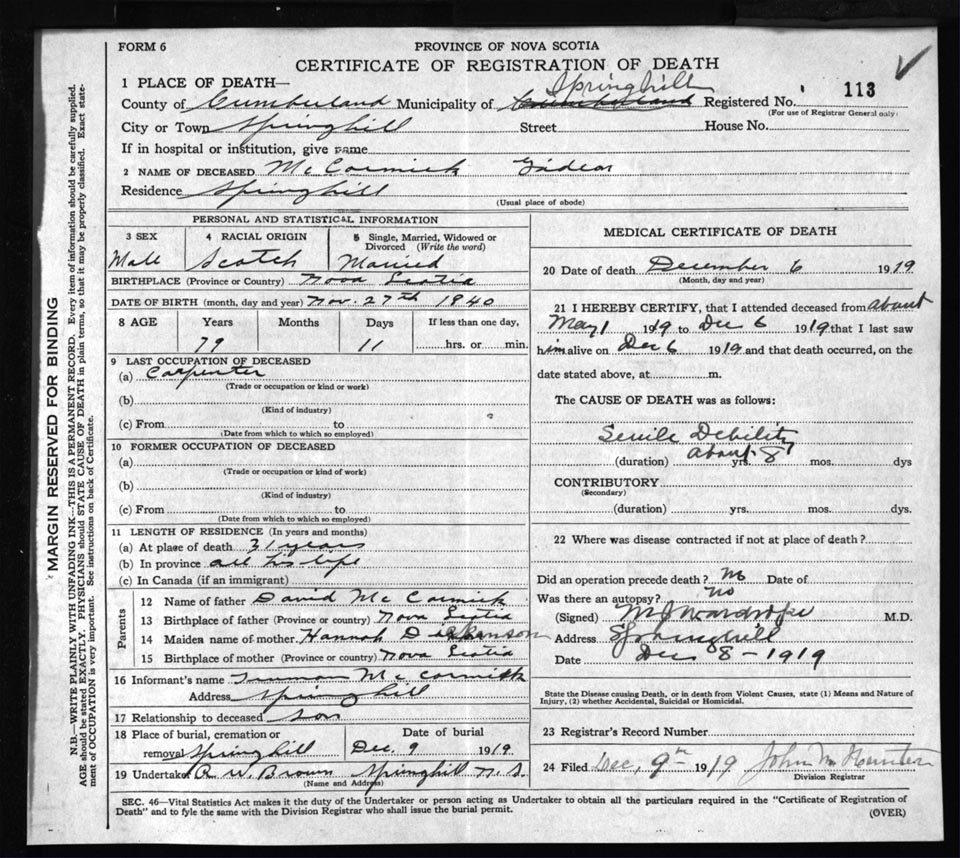 FORM 6
PROVINCE OF NOVA SCOTIA
CERTIFICATE OF REGISTRATION OF DEATH
1 PLACE OF DEATH—
Springhill
113
County of Cumberland Municipality of Cumberland Registered No.
(For use of Registrar General only)
City or Town Springhill Street House No.
If in hospital or institution, give name
2 NAME OF DECEASED McCormick
Residence Springhill
(Usual place of abode)
PERSONAL AND STATISTICAL INFORMATION
3 SEX 4 RACIAL ORIGIN 5 Single, Married, Widowed or Divorced (Write the word)
Male Scotch Married
BIRTHPLACE (Province or Country) Nova Scotia
DATE OF BIRTH (month, day and year) Nov. 27th 1840
8 AGE Years Months Days If less than one day,
79 11 hrs. or min.
9 LAST OCCUPATION OF DECEASED
(a) Carpenter
(Trade or occupation or kind or work)
(b)
(Kind of industry)
(c) From to
(Date from which to which so employed)
10 FORMER OCCUPATION OF DECEASED
(a)
(Trade or occupation or kind of work)
(b)
(Kind of industry)
(c) From to
(Date from which to which so employed)
11 LENGTH OF RESIDENCE (In years and months)
(a) At place of death 31 years
(b) In province all his life
(c) In Canada (if an immigrant)
Parents
12 Name of father David McCormick
13 Birthplace of father (Province or country) Nova Scotia
14 Maiden name of mother Hannah
15 Birthplace of mother (Province or country) Nova Scotia
16 Informant's name Truman McCormick
Address Springhill
17 Relationship to deceased son
18 Place of burial, cremation or Date of burial
removal Springhill Dec. 9 1919
19 Undertaker R W Brown Springhill N.S.
(Name and Address)
MEDICAL CERTIFICATE OF DEATH
20 Date of death December 6 1919
(Month, day and year)
21 I HEREBY CERTIFY, that I attended deceased from about
May 1 19 to Dec 6 1919 that I last saw
him alive on Dec 6 1919 and that death occurred, on the
date stated above, at m.
The CAUSE OF DEATH was as follows:
Senile Debility
(duration) about yrs. 8 mos. dys
CONTRIBUTORY
(Secondary)
(duration) yrs. mos. dys.
22 Where was disease contracted if not at place of death?
Did an operation precede death? no Date of
Was there an autopsy? no
(Signed) M J Wardrope M.D.
Address Springhill
Date Dec 8 - 1919
State the Disease causing Death, or in death from Violent Causes, state (1) Means and Nature of
Injury, (2) whether Accidental, Suicidal or Homicidal.
23 Registrar's Record Number
24 Filed Dec, 9th 1919 John M
Division Registrar
SEC. 46—Vital Statistics Act makes it the duty of the Undertaker or person acting as Undertaker to obtain all the particulars required in the "Certificate of Registration of
Death" and to fyle the same with the Division Registrar who shall issue the burial permit.
(OVER)
MARGIN RESERVED FOR BINDING
N.B.—WRITE PLAINLY WITH UNFADING INK—THIS IS A PERMANENT RECORD. Every item of information should be carefully supplied.
AGE should be stated EXACTLY. PHYSICIANS should STATE CAUSE OF DEATH in plain terms, so that it may be properly classified. Exact state-
ment of OCCUPATION is very important. See instructions on back of Certificate.